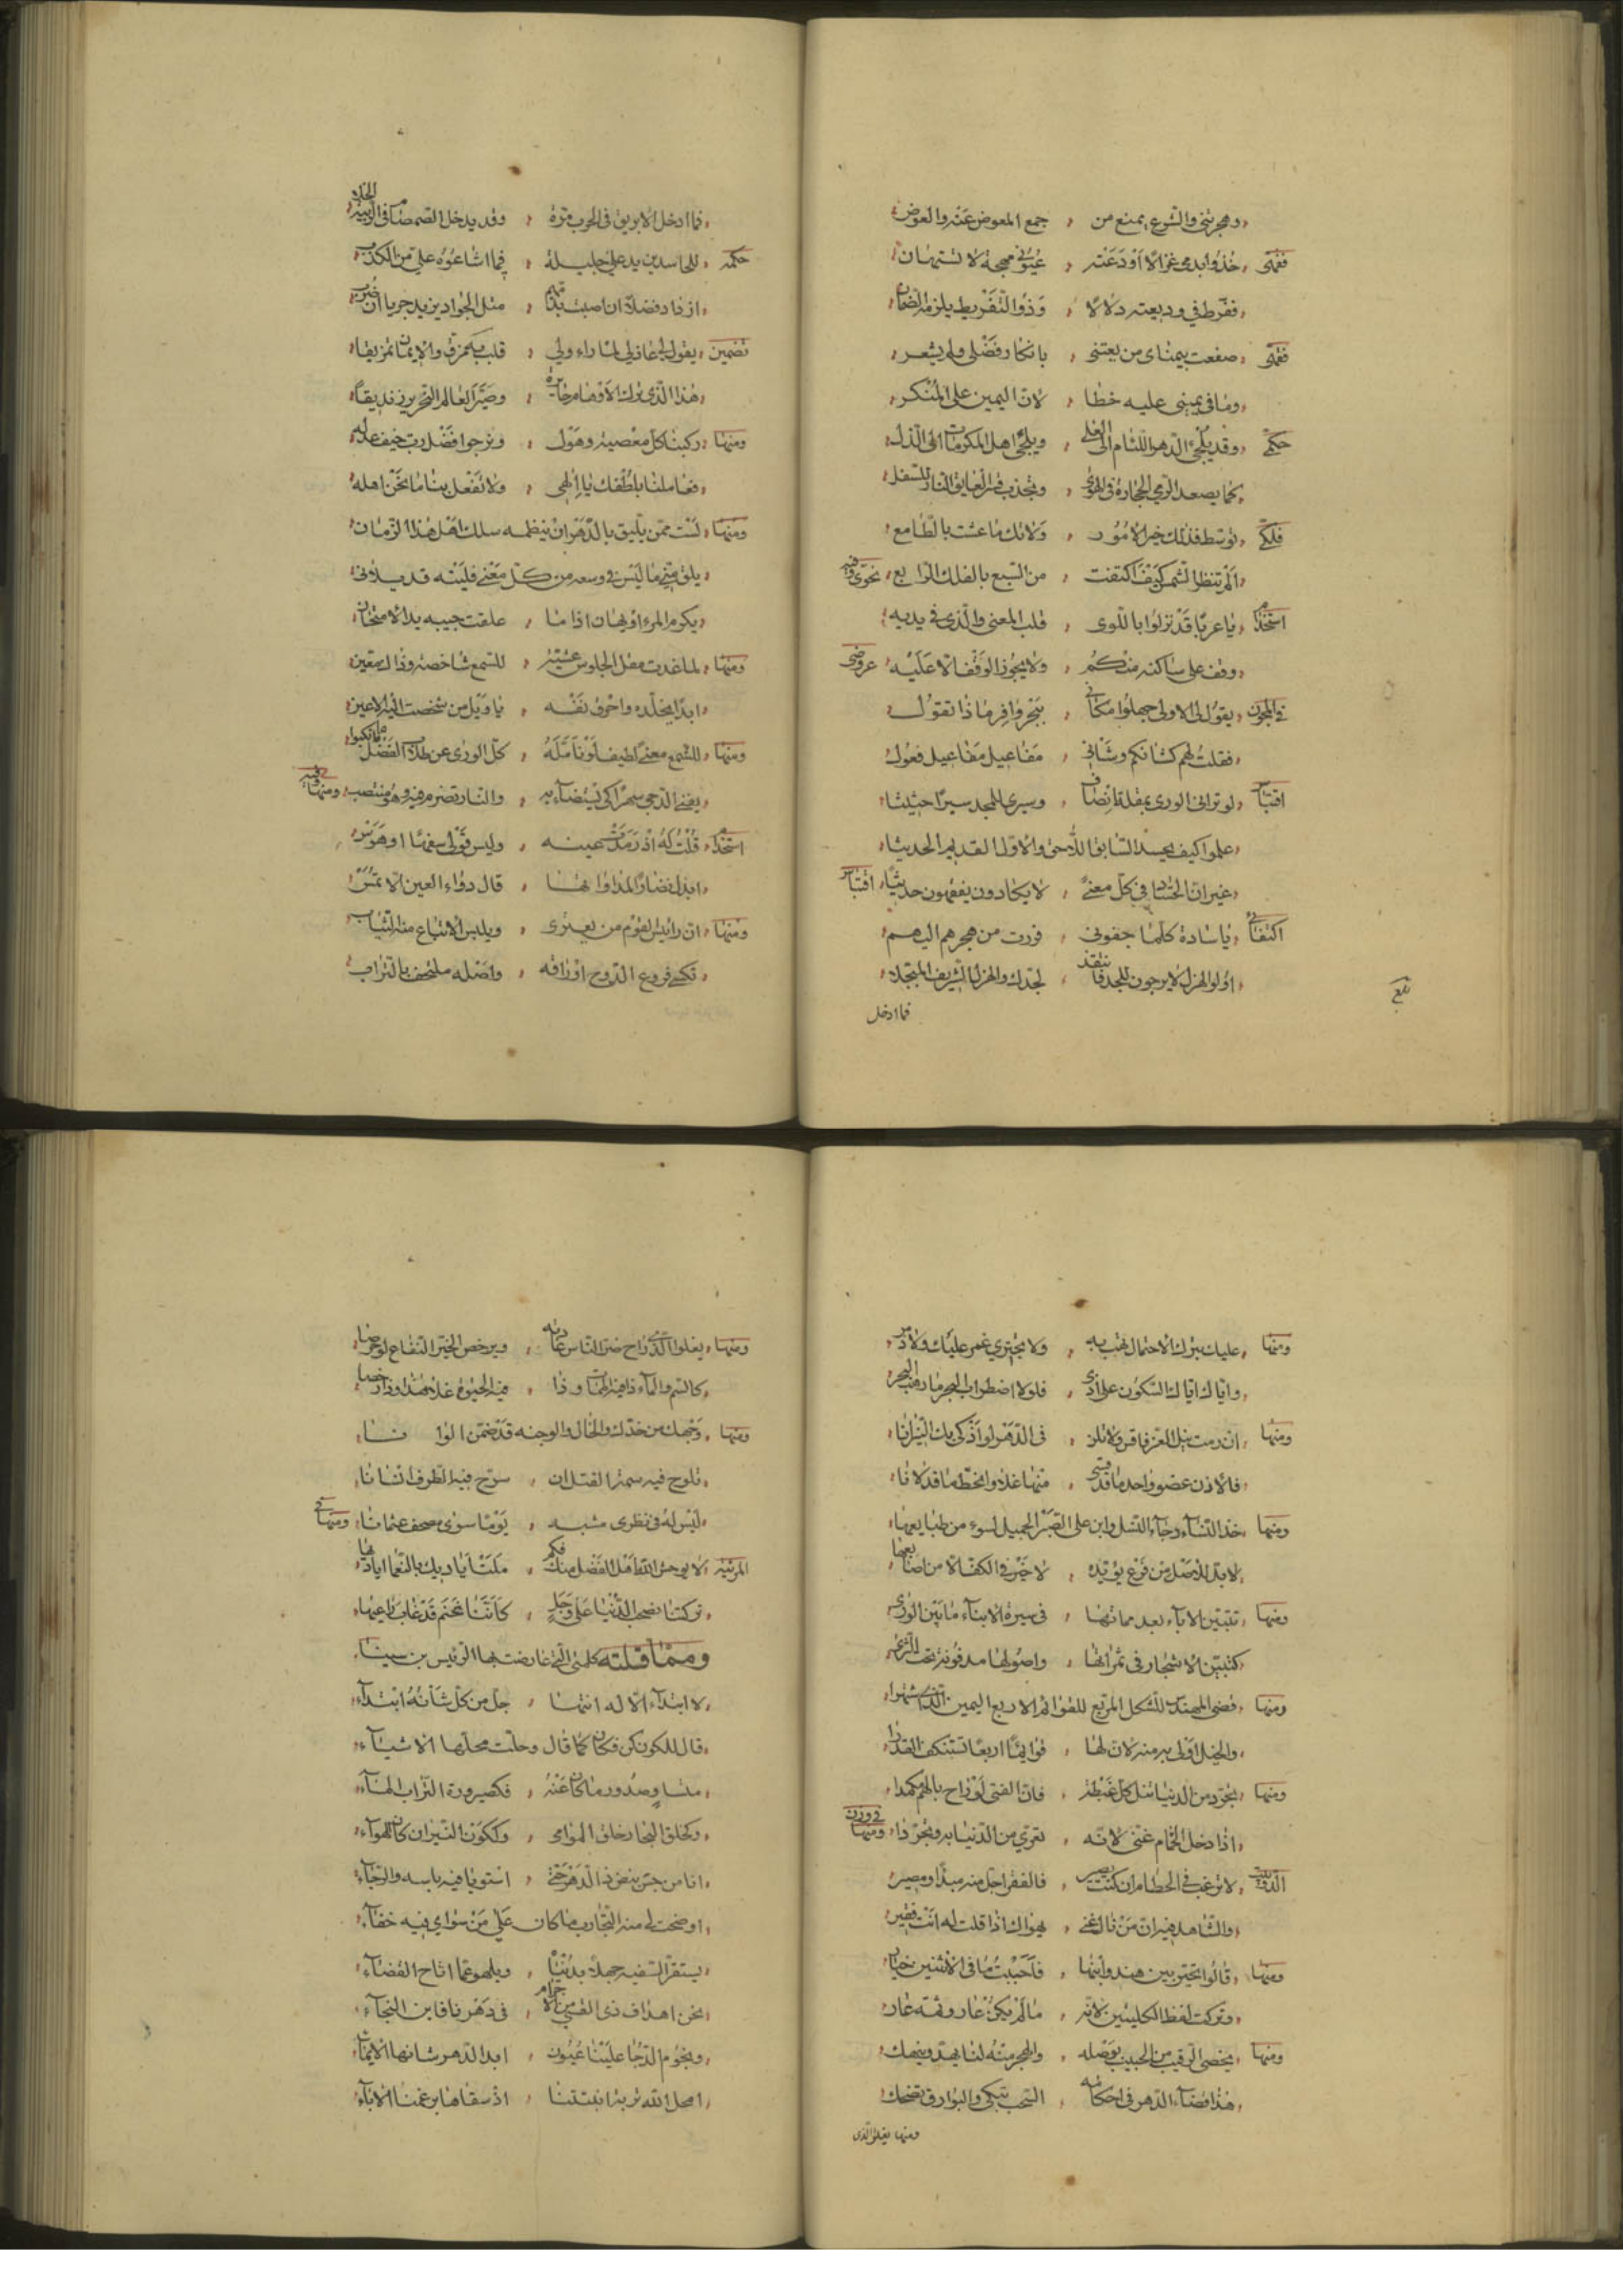 وهجرتني والشرع يمنع من ، جمع المعوض عنه والعوض
فقهى ، خذوا بدمى غزالا أودعته ، عيوني مهجة لا تستهان
ففرط في وديعته دلالا ، وذو التفريط يلزمه الضمان
فقهى ، صفعت بيمناى من يعتنى ، بانكار فضلى ولم يشعر
وما في يمينى عليه خطا ، لان اليمين على المنكر
حكمى ، وقد يلجئ الدهر اللئام الى العلى ، ويلجى اهل المكرمات الى الذل
كما يصعد الرمي الحجارة في الهوى ، وتجذب
فلكى ، توسط فذلك خير الامور ، ولاتك ما عشت بالطامع
الم تنظر الشمس كيف اكتفت ، من السبع بالفلك الرابع ، نحوى وفيه
استخدام ، يا عربا قد نزلوا باللوى ، قلب المعنى والذى في يديه
وقف على ساكنه منكم ، ولا يجوز الوقف الا عليه ، عروضى
في المجون ، يقول لى الاولى جهلوا مكاني ، بنجر وافر ماذا تقول
فقلت لهم كشانكم وشاني ، مفاعيل مفاعيل فعول
اقتباس ، لو تراني الورى بمقلة انصاف ، وسيرى للمجد سيرا حثيثا
علموا كيف يحسد السابق اللاحق والاول القديم الحديثا
غير ان الحساد في كل معنى ، لا يكادون يفقهون حديثا ، اقتباس
اكتفائى ، يا سادة كلما جفونى ، فررت من هجرهم اليهم
اولو الهزل لا يرجون للجد فانتقد ، لجدك والهزل الشريف المبجلا
تبلغ
فما ادخل
فما ادخل الابريق في الحرب مرة ، وقد يدخل الصمصام في
حكمه ، للحاسدين يد على جليلة ، فما اشاعوه على من الكذب
ازداد فضلا ان اصبت بذمهم ، مثل الجواد يزيد جريا ان ضرب
تضمين ، يقول لى عاذلى لما راء ولى ، قلب به مزق والايمان تمزيقا
هذا الذى ترك الاوهام حائرة ، وصير العالم النحرير زنديقا
ومنها ، ركبنا كل معصية وهول ، ونرجوا فضل رب خيف عدله
فعاملنا بلطفك يا الهى ، ولا تفعل بنا ما نحن اهله
ومنها ، لست ممن يليق بالدهر ان ينظمه سلك اهل هذا الزمان
يلق منى ما ليس في وسعه من كل معنى فليته قد
يكرم المرء او يهان اذا ما ، علقت جيبه يد الامتحان
ومنها ، لما غدت مقل الجلوس عشية ، للشمع شاخصة وذاك يقين
ابدا يخلده واحرق نفسه ، يا ويل من شخصت اليه الاعين
ومنها ، للشمع معنى لطيف لو تأمله ، كل الورى عن طلاب الفضل ما نكبوا
يفنى الدجى سهرا كى يستضاء به ، والنار تضرم فيه وهو منتصب ، ومنها وفيه
استخدام ، قلت له اذ رمدت عينه ، وليس قولى سفها او هوس
ابذل نضارا لمداواتها ، قال دواء العين الا تمس
ومنها ، ان رائيس القوم من يعترى ، ويلبس الاتباع منه الثياب
تكسى فروع الدوح اوراقه ، واصله ملتحف بالتراب
ومنها ، عليك بترك الاحتمال تهب به ، ولا يجترى غمر عليك ولا ذمر
واياك اياك السكون على اذى ، فلولا اضطراب البحر ما رهب البحر
ومنها ، ان رمت نيل العز فاقر ولا تلن ، في الدهر لو اذكى بك النيرانا
فالاذن عضو واحد ما قد قسى ، منها غدا وانحط ما قد لانا
ومنها ، خذ النساء وجاء النسل وابن على الصبر الجميل لسوء من طبايعها
لابد للاصل من فرع يؤيده ، لا خير في الكف الا من اصابعها
ومنها ، تتبين الاباء بعد مماتها ، في سيرة الابناء ما بين الورى
كتبين الاشجار في ثمراتها ، واصولها مدفونة تحت الثرى
ومنها ، قضى المهندس للشكل المربع للقوائم الاربع اليمين الذى اشتهرا
والجبل اولى به منه لان لها ، قوايما اربعا تستنكف القدرا
ومنها ، تجرد من الدنيا تنل كل غبطة ، فان الفتى لو راح بالهم مكمدا
اذا دخل الحمام غنى لانه ، تعرى من الدنيا به وتجردا ، ومنها في وزن
الدوبيت ، لا ترغب في الحطام ان كنت بصير ، فالفقر اجل منه مبدا ومصير
والشاهد فيه ان من نال غنى ، يهواك اذا قلت له انت فقير
ومنها ، قالوا تخير بين هند وابنها ، فاجبت ما في الاثنين خيار
وتركت لفظ الكليتين لانه ، ما لم يكن عار وفيه عار
ومنها ، يخصى الرقيب من الحبيب بوصله ، والهجر منه لنا يهد وينهك
هذا قضاء الدهر في احكامه ، السحب تبكى والبوارق تضحك
ومنها يغلو الذى
ومنها ، يغلوا الذى راح ضر الناس عادته ، ويرخص الخير النفاع لو حرصا
كالسم والماء ذا فيه الممات وذا ، فيه الحيوة غلا هذا وذا رخصا
ومنها ، وجهك من خدك والخال والوجنه قد ضمن الوانا
تلوح فيه سمة القتل ان ، سرح فيه الطرف انسانا
ليس له في نظرى مشبه ، يوما سوى مصحف عثمانا ، ومنها في
المرثيه ، لا يوحش الله اهل الفضل منك فكم ، ملكتنا ياديك بالنعما اياديها
تركتنا نصحب الدنيا على وجل ، كأننا غنم قد غاب راعيها
ومما قلته كلمتى التى عارضت بها الرئيس بن سينا
لا ابتداء الا له انتها ، جل من كل شأنه ابتداء
قال للكون كن فكان كما قال وحلت محلها الاشياء
منشا وصدور ما كان عنه ، فكصيرورة التراب الماء
وكخلق البخار خلق الموامى ، وككون النيران كان الهواء
انا من جس نبض ذا الدهر حتى ، استويا فيه باسه والرجاء
اوضحت لى منه التجارب ما كان على من سواى فيه خفاء
يستقر السفيه جهلا بدنيا ، ويلهو عما اتاح القضاء
نحن اهداف ذى القسى من الاجرام ، في دهرنا فاين النجاء
ونجوم الدجا علينا عيون ، ابدا الدهر شانها الايماء
امحل الله تربة انبتتنا ، اذ سقاها برغمنا الاباء